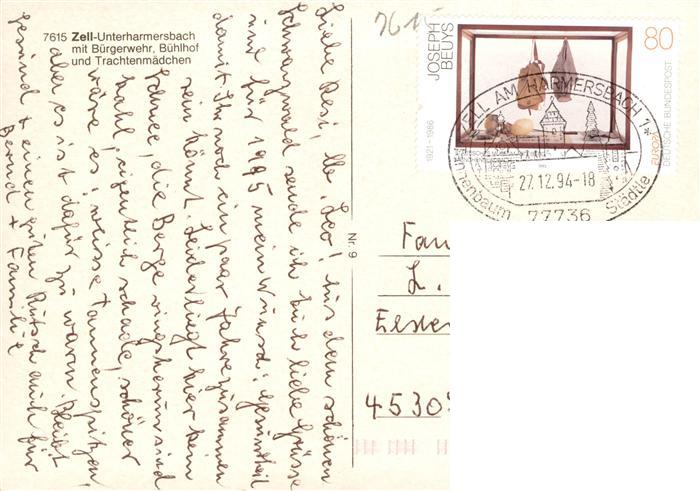 7615 Zell-Unterharmersbach
mit Bürgerwehr, Bühlhof
und Trachtenmädchen
Liebe Resi, lb. Leo! Aus dem schönen
Schwarzwald sende ich Euch liebe Grüsse
und für 1995 mein Wunsch: Gesundheit
damit Ihr noch ein paar Jahre zusammen
sein könnt. Leider liegt hier kein
Schnee, die Berge ringsherum sind
kahl, eigentlich schade, schöner
wäre es: weisse Tannenspitzen,
aber es ist dafür zu warm. Bleibt
gesund + einen guten Rutsch auch für
Bernd + Familie
Nr. 9
7615
JOSEPH
BEUYS
1921-1986
80
DEUTSCHE BUNDESPOST
EUROPA
ZELL AM HARMERSBACH 1
27.12.94-18
77736
Städtle
Fam
L.
Elster
45307